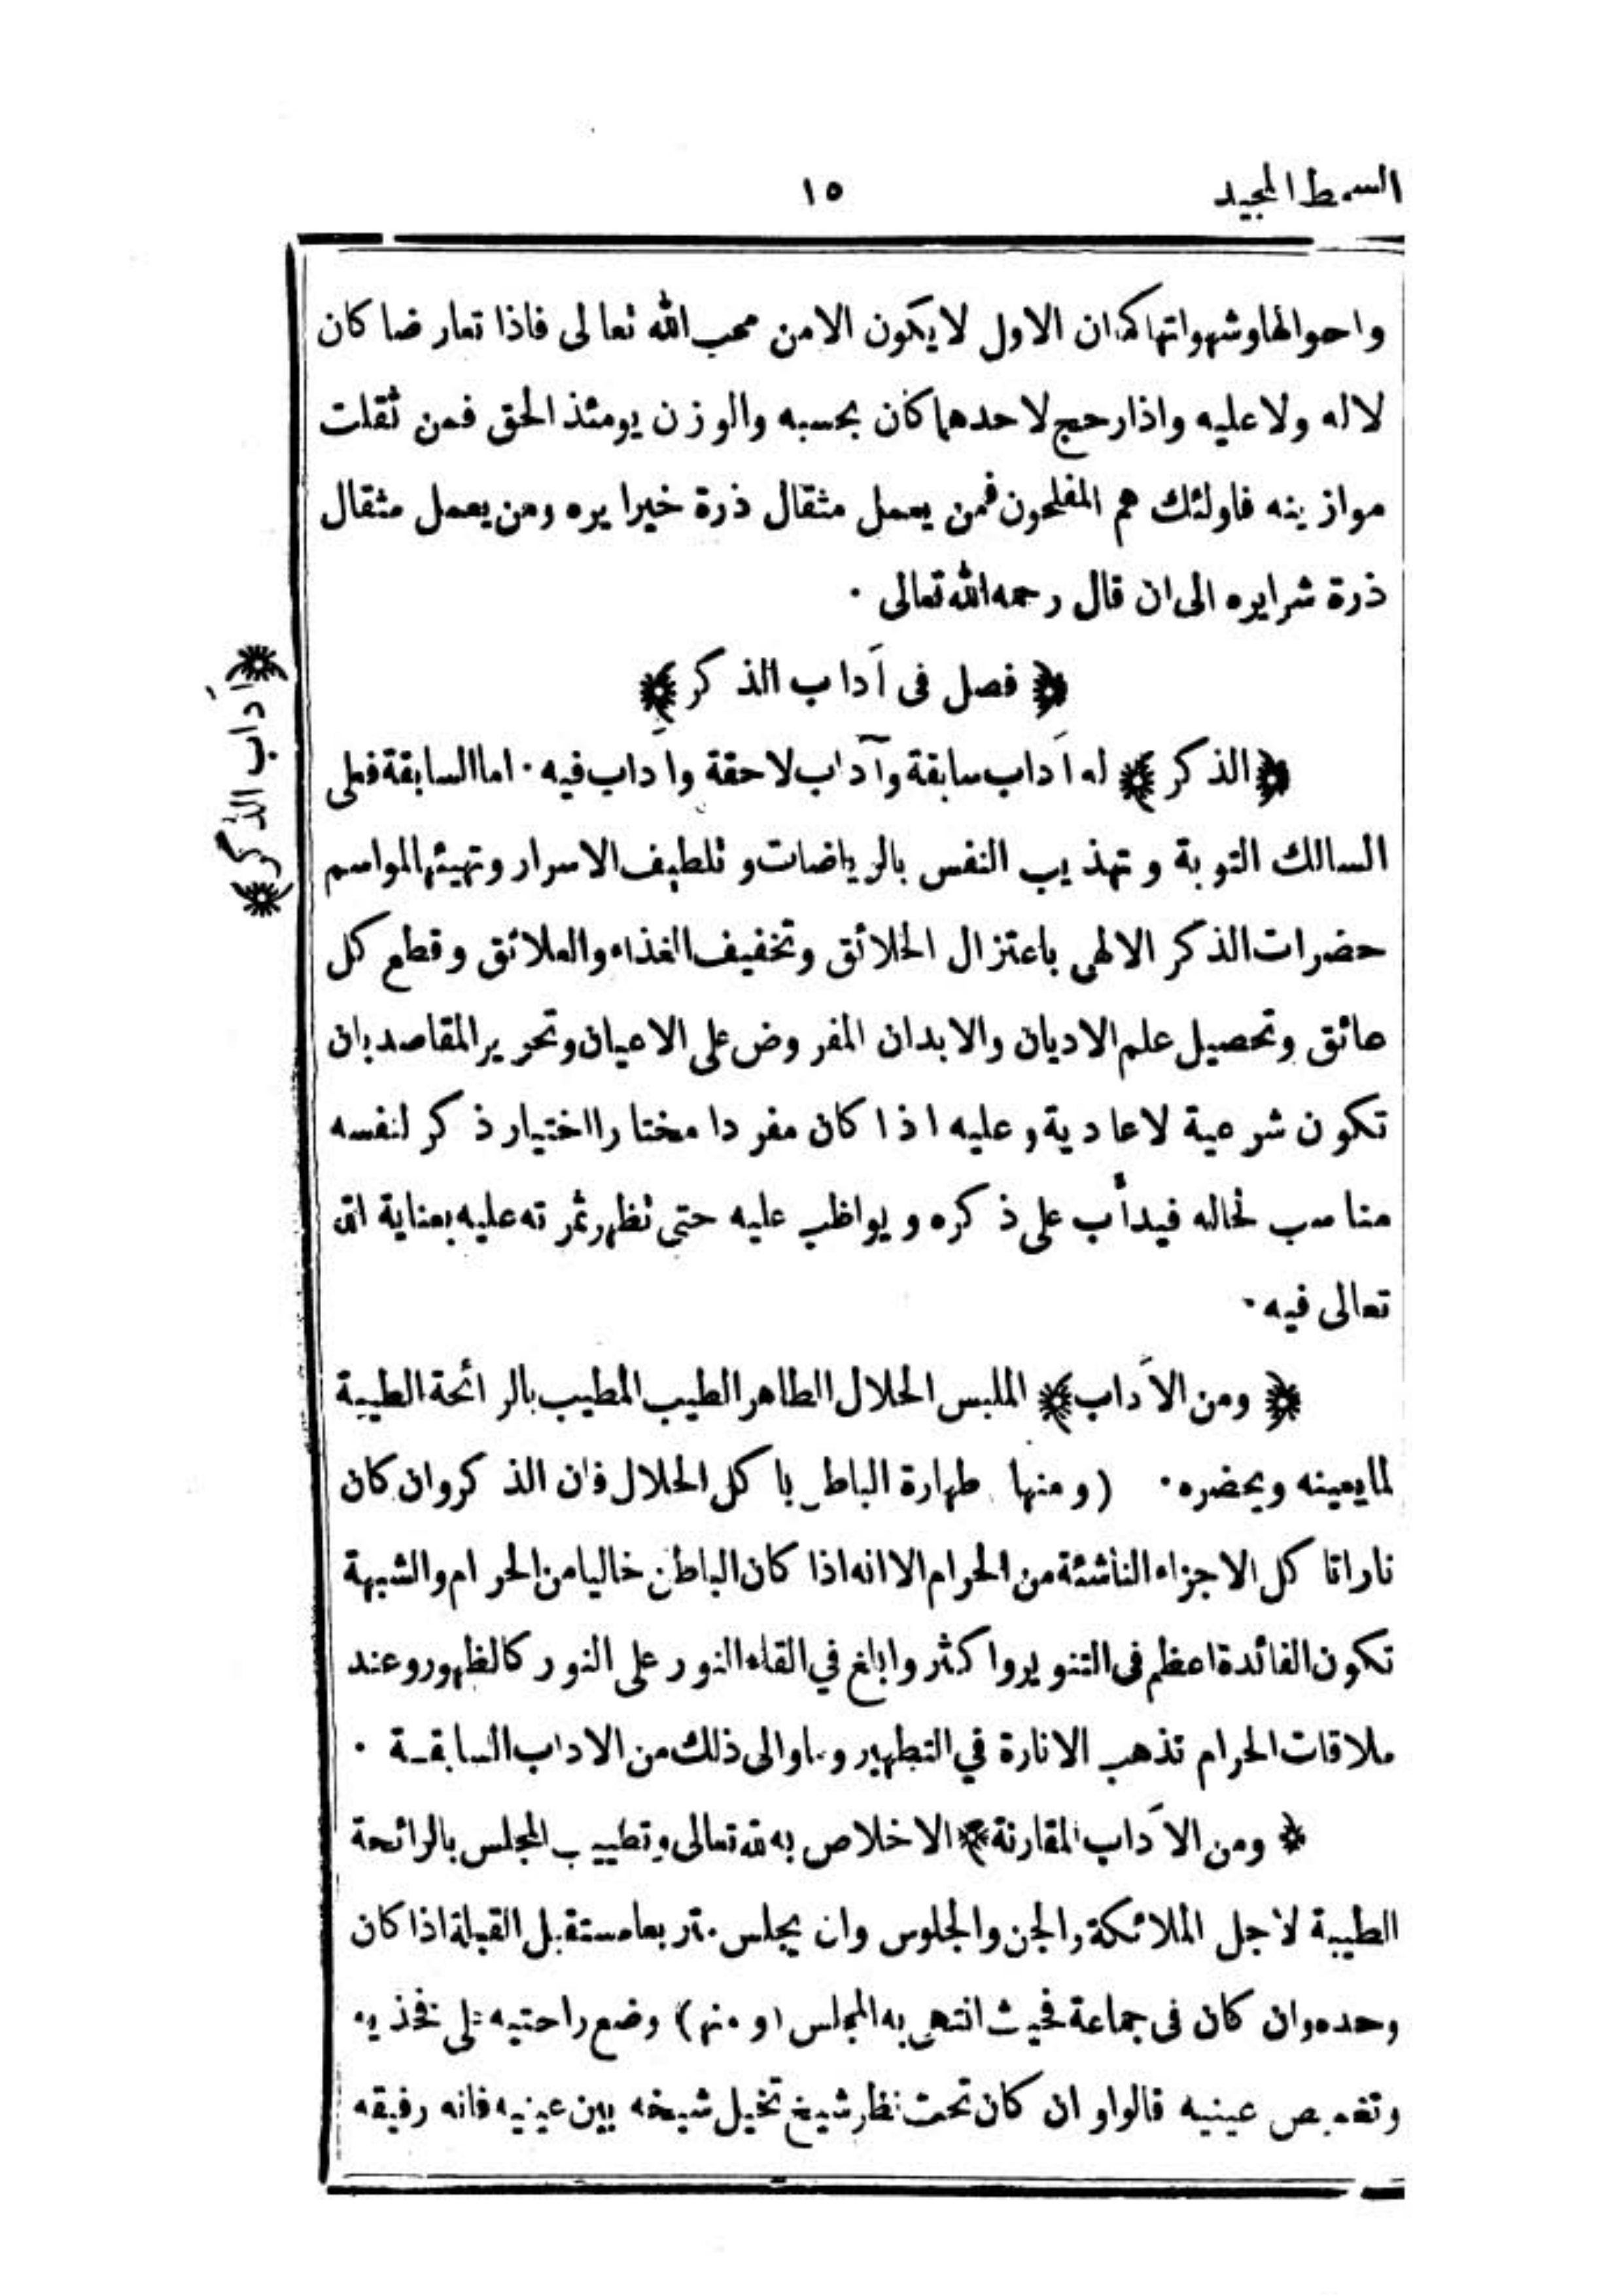 السمط المجيد
١٥
واحوالها وشهواتها كما ان الاول لا يكون الا من محب الله تعالى فاذا تعارضا كان
لا له ولا عليه واذا رجح لاحدهما كان بحسبه والوزن يومئذ الحق فمن ثقلت
موازينه فاولئك هم المفلحون فمن يعمل مثقال ذرة خيرا يره ومن يعمل مثقال
ذرة شرا يره الى ان قال رحمه الله تعالى ٠
﴿ فصل فى آداب الذكر ﴾
﴿ الذكر ﴾ له آداب سابقة وآداب لاحقة وآداب فيه ٠ اما السابقة فعلى
السالك التوبة وتهذيب النفس بالرياضات وتلطيف الاسرار وتهيئها لمواسم
حضرات الذكر الالهى باعتزال الخلائق وتخفيف الغذاء والعلائق وقطع كل
عائق وتحصيل علم الاديان والابدان المفروض على الاعيان وتحرير المقاصد بان
تكون شرعية لا عادية وعليه اذا كان مفردا مختارا اختيار ذكر لنفسه
مناسب لحاله فيدأب على ذكره ويواظب عليه حتى تظهر ثمرته عليه بعناية الله
تعالى فيه ٠
﴿ ومن الآداب ﴾ الملبس الحلال الطاهر الطيب المطيب بالرائحة الطيبة
لما يعينه ويحضره ٠ (ومنها طهارة الباطن باكل الحلال فان الذكر وان كان
نارا تاكل الاجزاء الناشئة من الحرام الا انه اذا كان الباطن خاليا من الحرام والشبهة
تكون الفائدة اعظم فى التنوير واكثر وابلغ في القاء النور على النور كالظهور وعند
ملاقات الحرام تذهب الانارة في التطهير وما والى ذلك من الاداب السابقة ٠
﴿ ومن الآداب المقارنة ﴾ الاخلاص به لله تعالى وتطييب المجلس بالرائحة
الطيبة لاجل الملائكة والجن والجلوس وان يجلس متربعا مستقبل القبلة اذا كان
وحده وان كان فى جماعة فحيث انتهى به المجلس (ومنها) وضع راحتيه على فخذيه
وتغميص عينيه قالوا وان كان تحت نظر شيخ تخيل شيخه بين عينيه فانه رفيقه
﴿ آداب الذكر ﴾